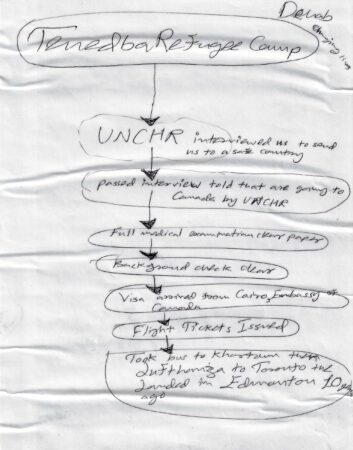 Derab
changing lives
Tenedba Refugee Camp
UNCHR interviewed us to send
us to a safe country
passed interview told that are going to
Canada by UNHCR
Full medical examination clear paper
Background check clear
Visa arrived from Cairo, Embassy of
Canada
Flight Tickets Issued
Took bus to Khartoum then
Lufthaniza to Toronto the
Landed in Edmonton 10
ago